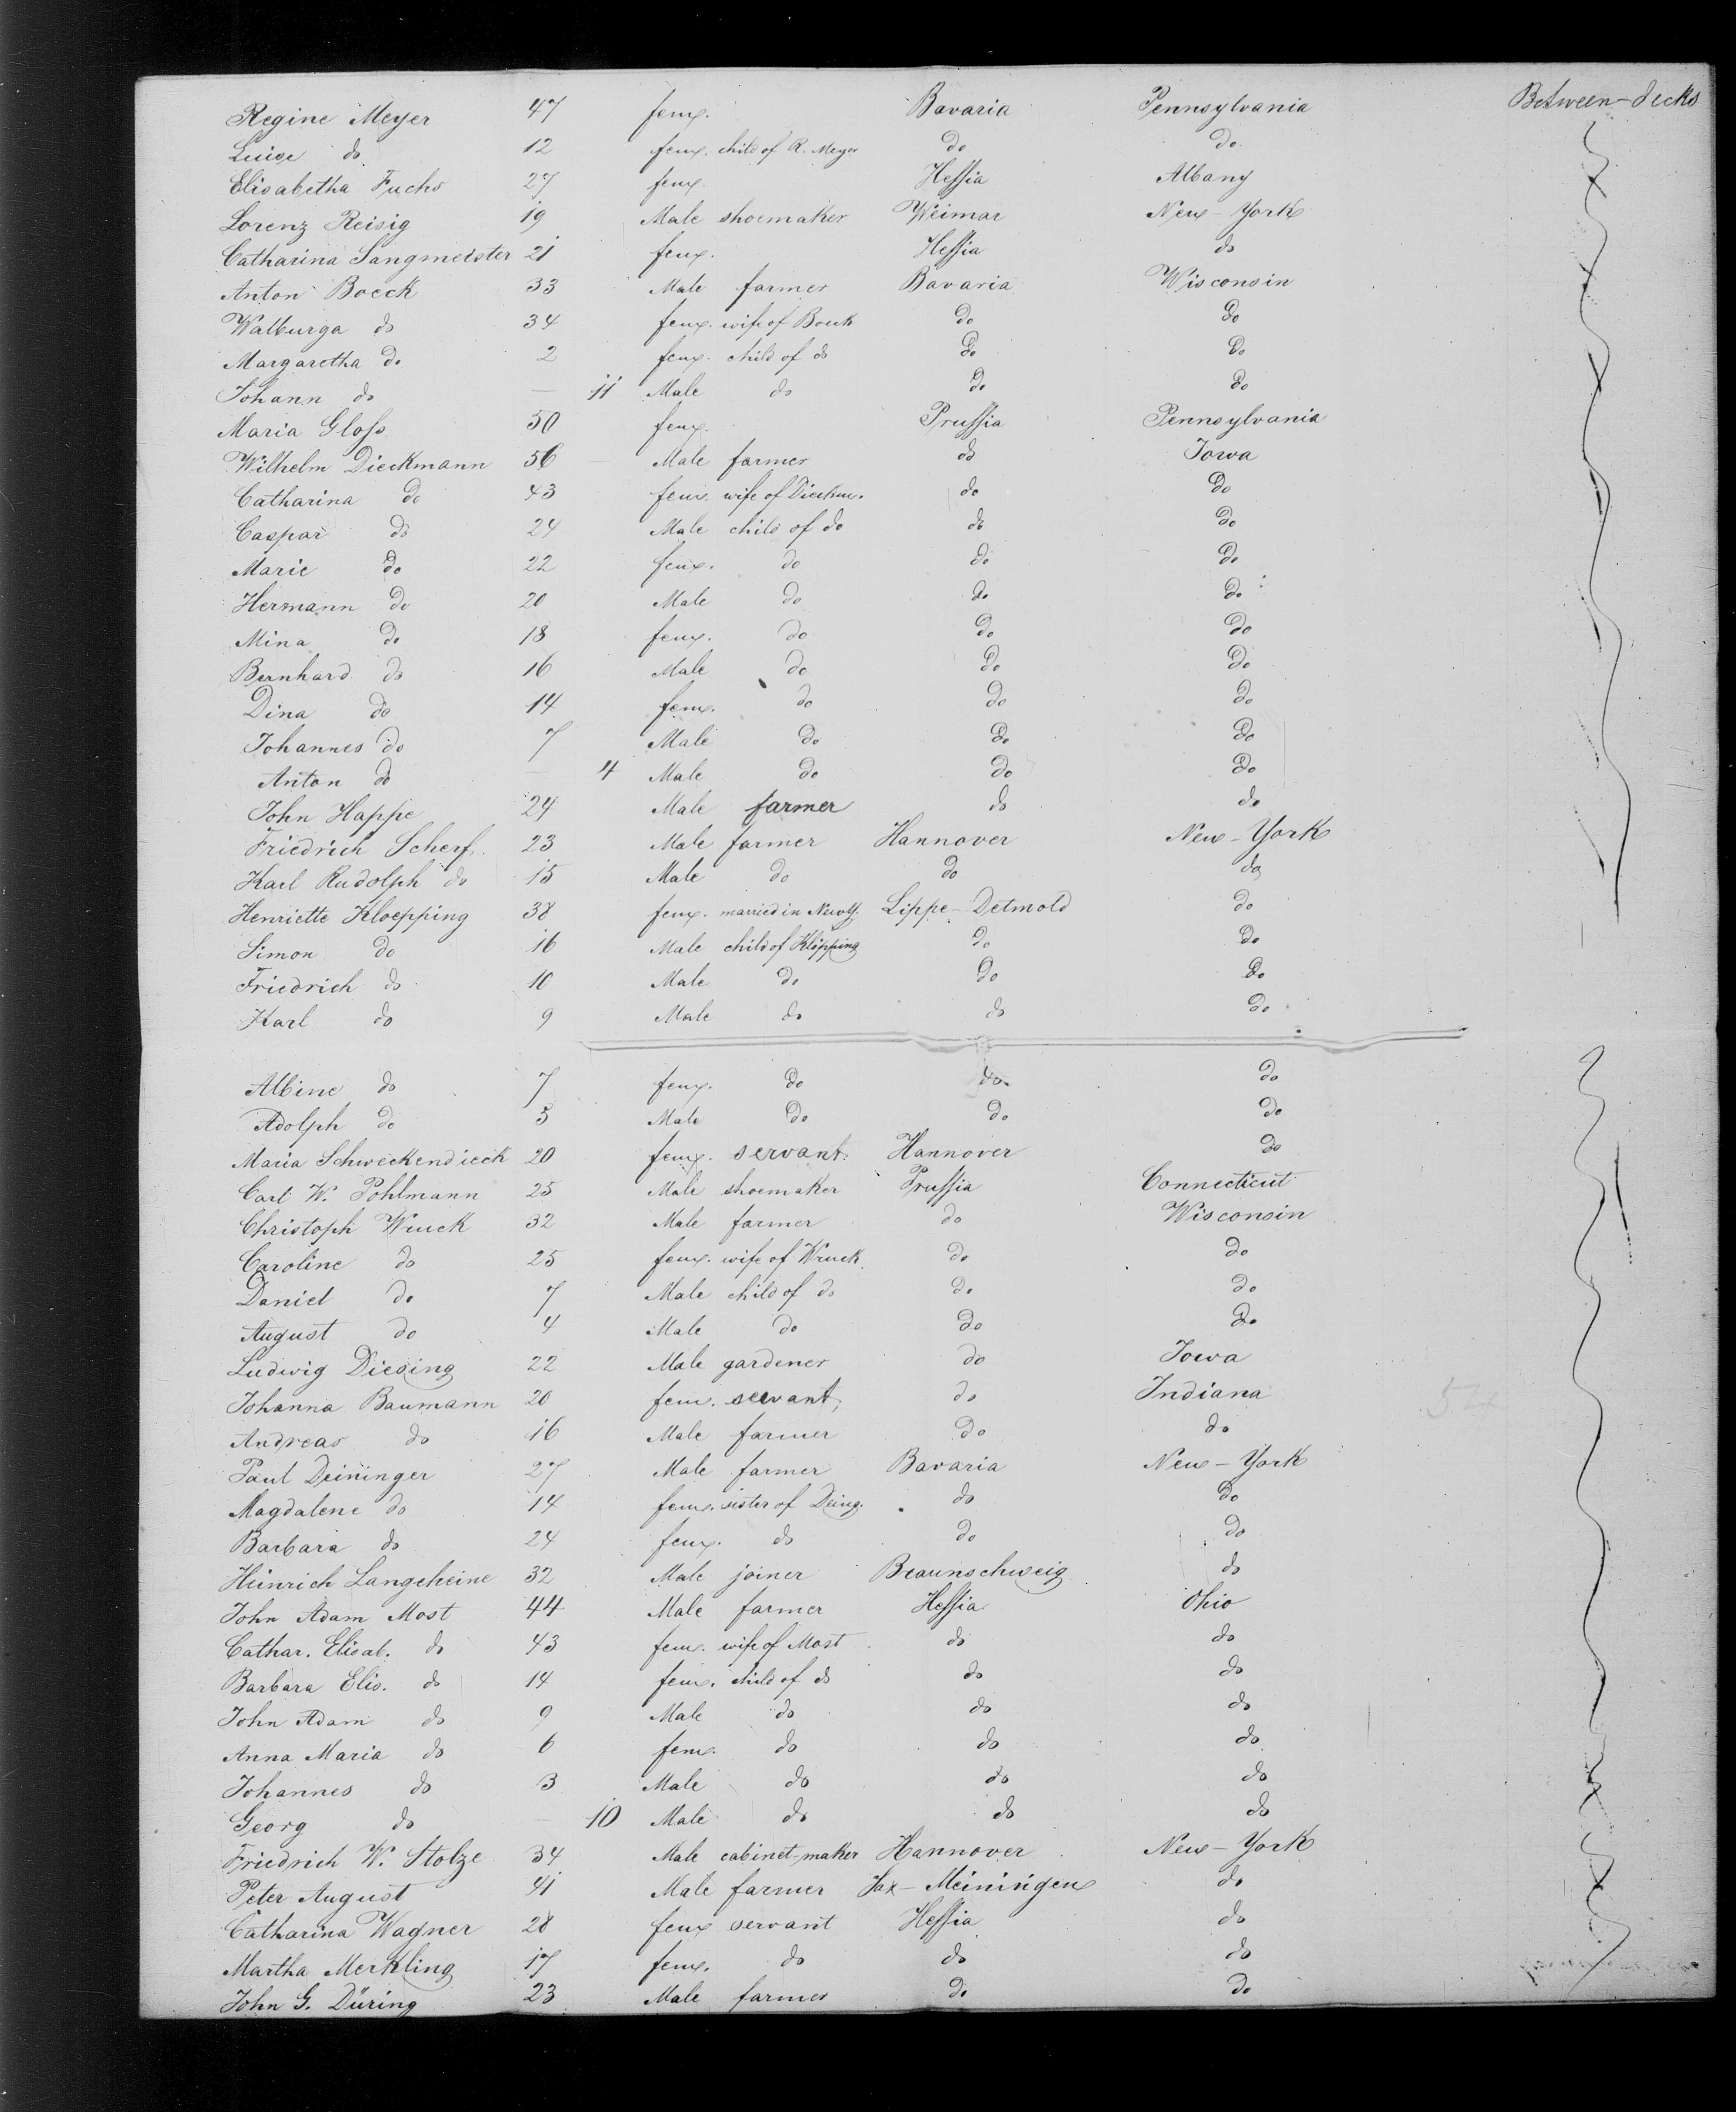 Between-decks
Regine Meyer 47 fem. Bavaria Pennsylvania
Luise do 12 fem. child of R. Meyer do do
Elisabetha Fuchs 27 fem. Hessia Albany
Lorenz Reisig 19 Male shoemaker Weimar New-York
Catharina Sangmeister 21 fem. Hessia do
Anton Boeck 33 Male farmer Bavaria Wisconsin
Walburga do 34 fem. wife of Boeck do do
Margaretha do 2 fem. child of do do do
Johann do — 11 Male do do do
Maria Gloss 50 fem. Prussia Pennsylvania
Wilhelm Dieckmann 56 — Male farmer do Iowa
Catharina do 43 fem. wife of Dieckm. do do
Caspar do 24 Male child of do do do
Marie do 22 fem. do do do
Hermann do 20 Male do do do
Mina do 18 fem. do do do
Bernhard do 16 Male do do do
Dina do 14 fem. do do do
Johannes do 7 Male do do do
Anton do — 4 Male do do do
John Happe 24 Male farmer do do
Friedrich Scherf 23 Male farmer Hannover New-York
Karl Rudolph do 15 Male do do do
Henriette Kloepping 38 fem. married in Lippe-Detmold do
Simon do 16 Male child of Klöpping do do
Friedrich do 10 Male do do do
Karl do 9 Male do do do
Albine do 7 fem. do do do
Adolph do 5 Male do do do
Maria Schweckendieck 20 fem. servant Hannover do
Carl W. Pohlmann 25 Male shoemaker Prussia Connecticut
Christoph Wruck 32 Male farmer do Wisconsin
Caroline do 25 fem. wife of Wruck do do
Daniel do 7 Male child of do do do
August do 4 Male do do do
Ludwig Diesing 22 Male gardener do Iowa
Johanna Baumann 20 fem. servant, do Indiana
Andreas do 16 Male farmer do do
Paul Deininger 27 Male farmer Bavaria New-York
Magdalene do 14 fem. sister of Deing. do do
Barbara do 24 fem. do do do
Heinrich Langeheine 32 Male joiner Braunschweig do
John Adam Most 44 Male farmer Hessia Ohio
Cathar. Elisab. do 43 fem. wife of Most do do
Barbara Elis. do 14 fem. child of do do do
John Adam do 9 Male do do do
Anna Maria do 6 fem. do do do
Johannes do 3 Male do do do
Georg do — 10 Male do do do
Friedrich W. Stolze 34 Male cabinet-maker Hannover New-York
Peter August 41 Male farmer Sax-Meiningen do
Catharina Wagner 28 fem servant Hessia do
Martha Merkling 17 fem. do do do
John G. Düring 23 Male farmer do do